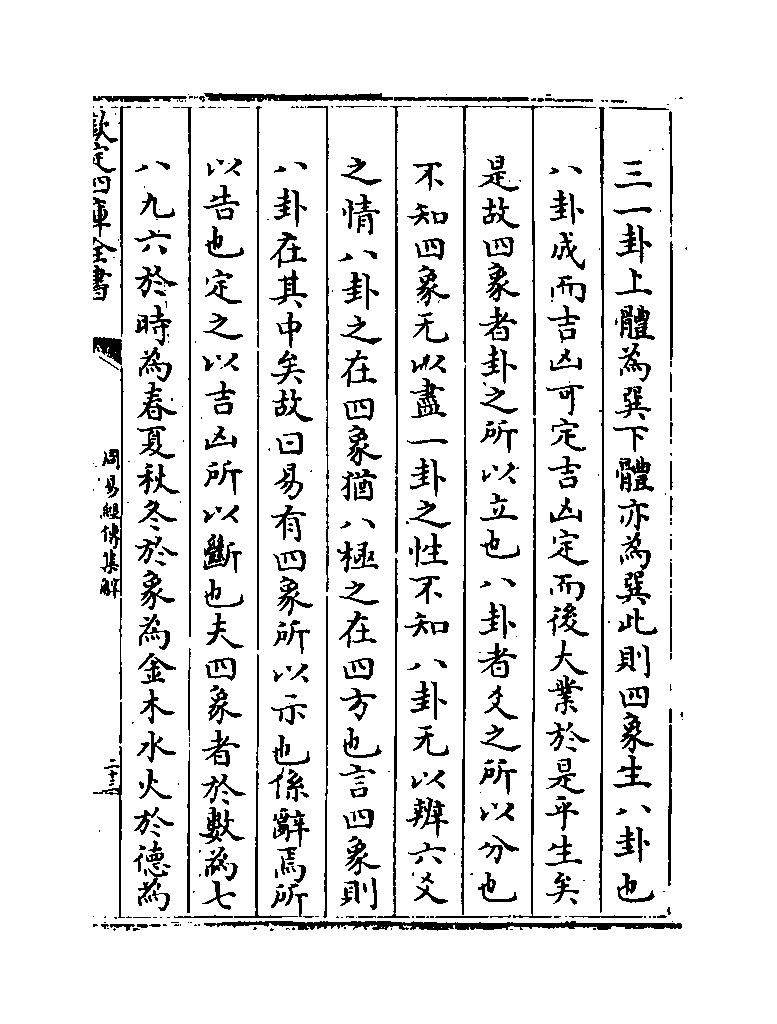 三一卦上體為巽下體亦為巽此則四象生八卦也
八卦成而吉凶可定吉凶定而後大業於是乎生矣
是故四象者卦之所以立也八卦者爻之所以分也
不知四象无以盡一卦之性不知八卦无以辨六爻
之情八卦之在四象猶八極之在四方也言四象則
八卦在其中矣故曰易有四象所以示也係辭焉所
以告也定之以吉凶所以斷也夫四象者於數為七
八九六於時為春夏秋冬於象為金木水火於德為
欽定四庫全書
周易經傳集解
二十三